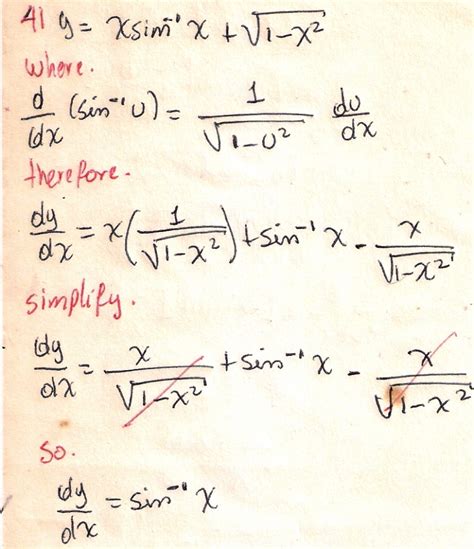 41 y = x sin⁻¹ x + √(1-x²)
where.
d/dx (sin⁻¹ u) = 1/√(1-u²) du/dx
therefore.
dy/dx = x(1/√(1-x²)) + sin⁻¹ x - x/√(1-x²)
simplify.
dy/dx = x/√(1-x²) + sin⁻¹ x - x/√(1-x²)
so.
dy/dx = sin⁻¹ x